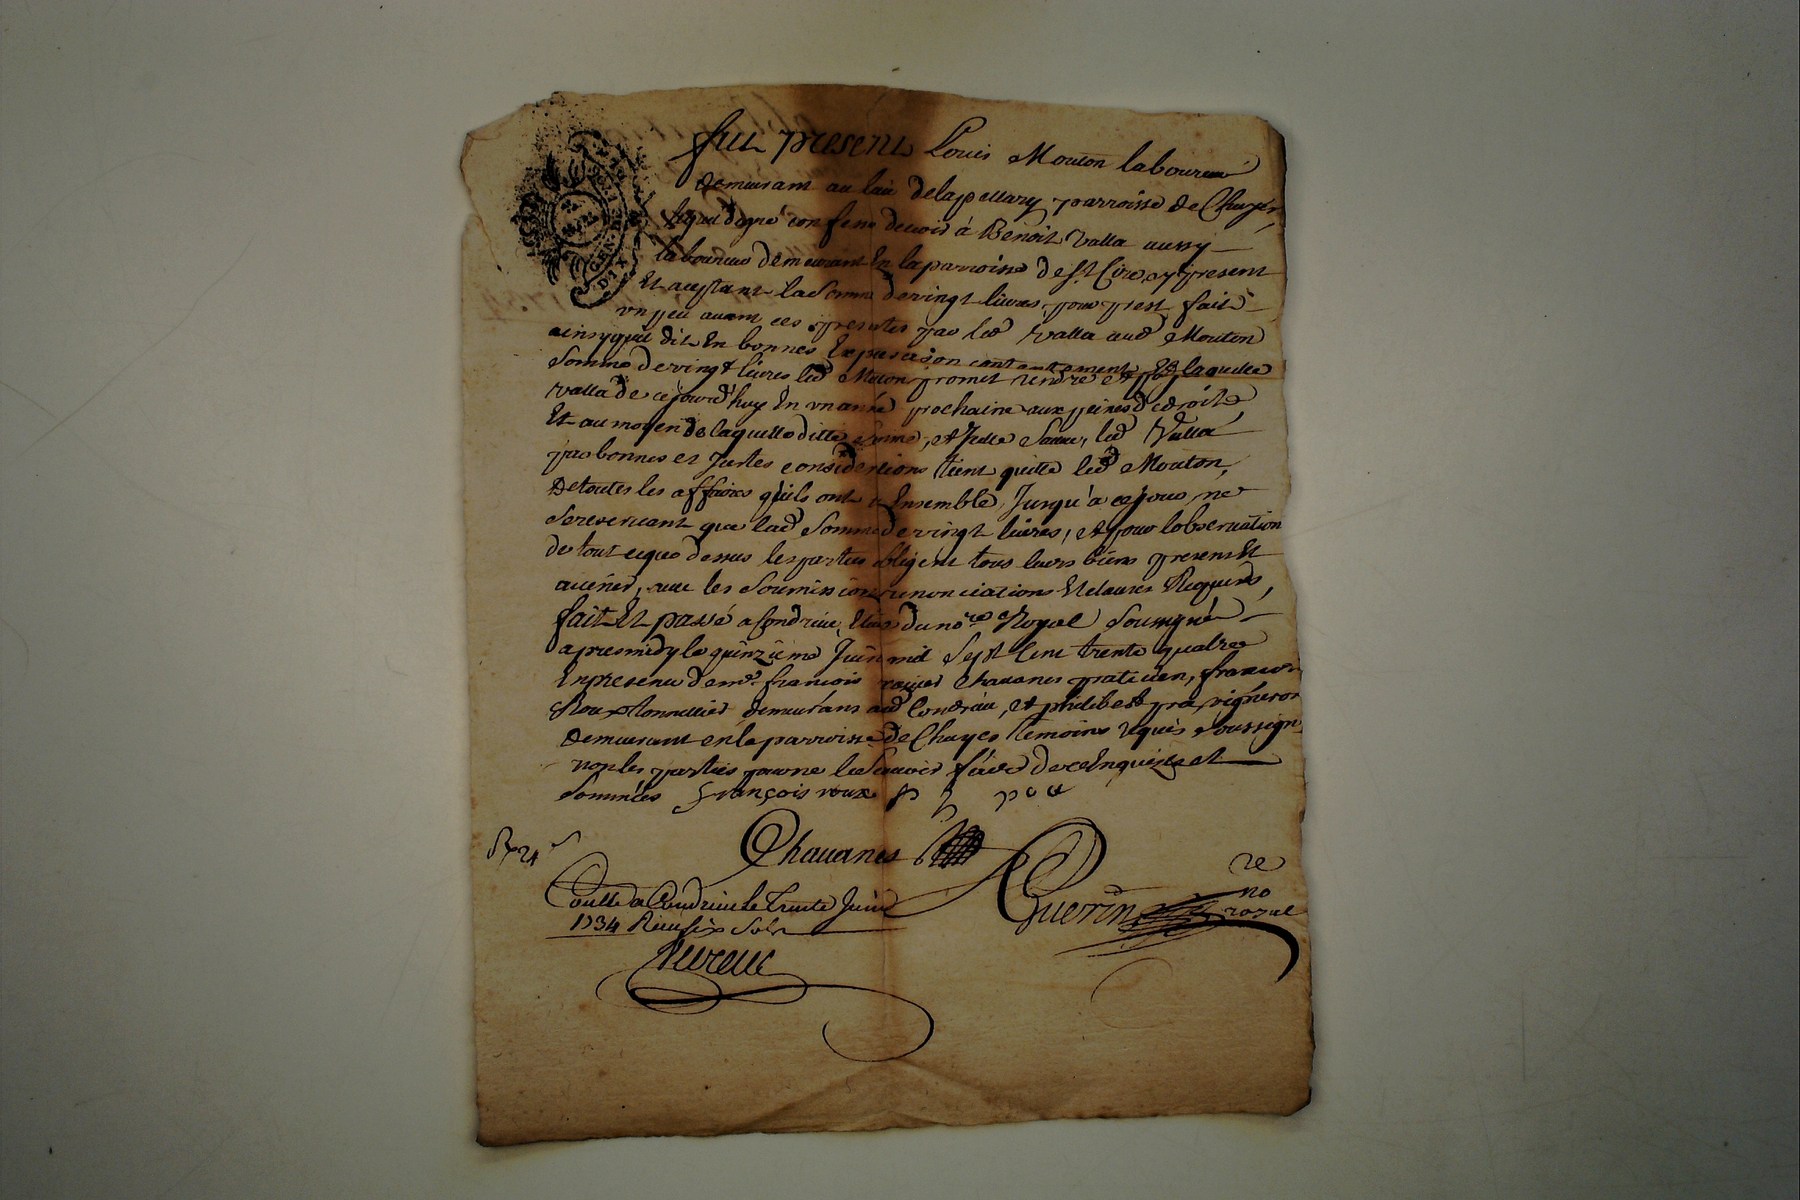 fut present Louis Mouton laboureur
demeurant au lieu delapellary parroisse de Chuyer
lequel degré confesse devoir à Benoit Valla aussy
laboureur demeurant En la parroisse de St Cire, cy present
Et aceptant la Somme devingt livres, pour prest fait
un peu avant ces presentes par led Valla aud Mouton
ainsy quil dit En bonnes Especes a son contentement laquelle
Somme devingt livres led Mouton promet rendre
Valla de cejourd'huy En un année prochaine aux peines de droit
Et au moyen de laquelle ditte Somme, led Valla
par bonnes et Justes considerations tient quitte led Mouton,
de toutes les affaires quils ont Ensemble, Jusqu'à cejour, ne
Sereservant que lad Somme devingt livres, et pour lobservation
de tout ceque dessus les parties obligent tous leurs biens presens Et
avenir, avec les Soumissions renonciations Et clauses Requises,
fait Et passé a Condrieu, Etude du nore Royal Soussigné
apresmidy le quinzieme Juin mil Sept Cent trente quatre
En presence de me. françois Chavanes praticien, françois
Roux tonnellier demeurans aud Condrieu, et philibert pra vigneron
demeurant en la parroisse de Chuyes temoins Requis Soussignes
non les parties pour ne le Scavoir faire de ce Enquises et
Sommées françois roux p pra
Chavanes
Guerin
re
no
royal
Controllé a Condrieu le Trente Juin
1734 Reçu six Sols